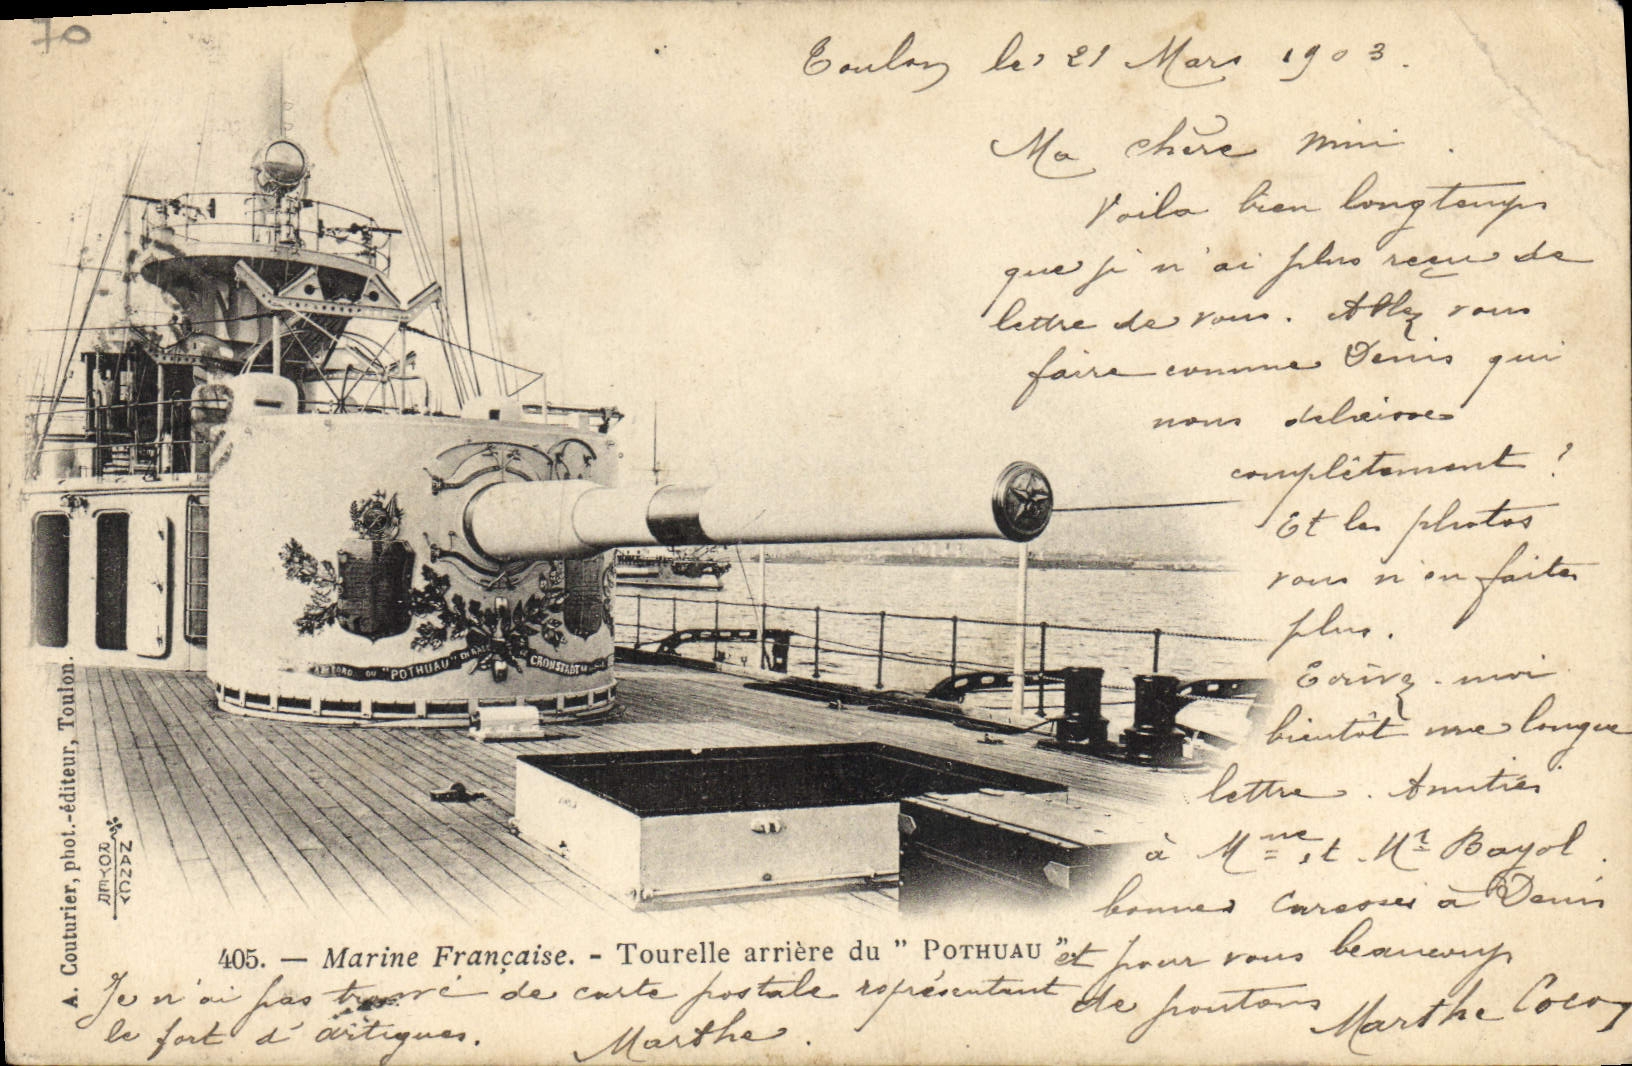 70
Toulon le 21 Mars 1903.
Ma chère Mini.
Voila bien longtemps
que je n'ai plus reçu de
lettre de vous. Allez vous
faire comme Denis qui
nous délaisse
complêtement ?
Et les photos
vous n'en faites
plus.
Ecrivez-moi
bientôt une longue
lettre. Amitiés
à Mme et Mr Bayol.
bonnes caresses à Denis
et pour vous beaucoup
de poutons
Marthe
Je n'ai pas trouvé de carte postale représentant
le fort d'artigues. Marthe.
"POTHUAU" EN RADE DE CRONSTADT
405. — Marine Française. - Tourelle arrière du "POTHUAU"
A. Couturier, phot.-éditeur, Toulon.
ROYER
NANCY